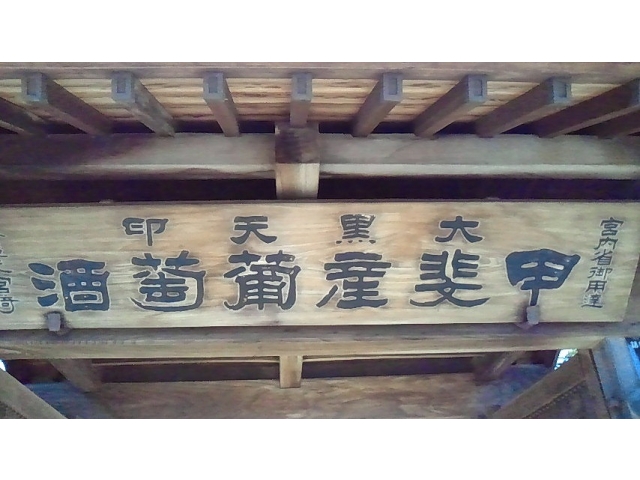 宮内省御用達
大黒天印
甲斐産葡萄酒